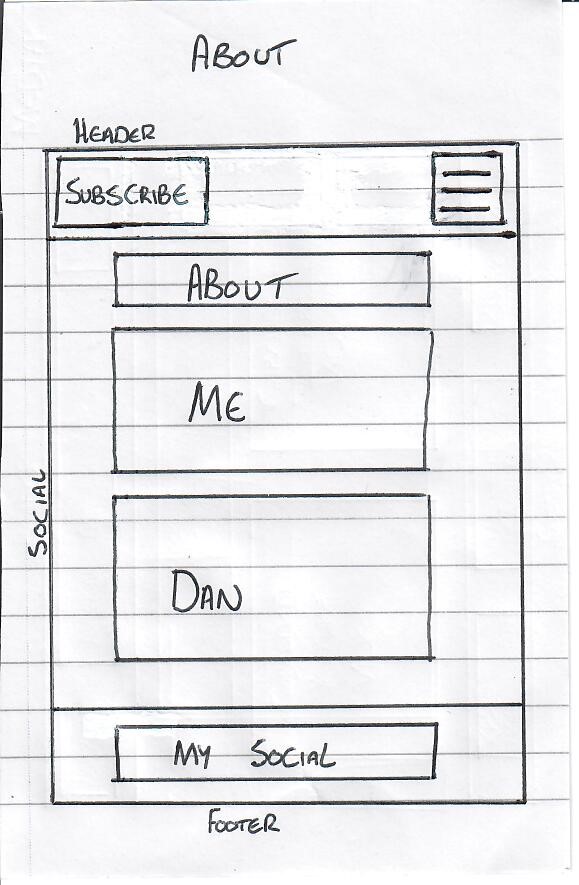 ABOUT
HEADER
SUBSCRIBE
ABOUT
ME
SOCIAL
DAN
MY SOCIAL
FOOTER